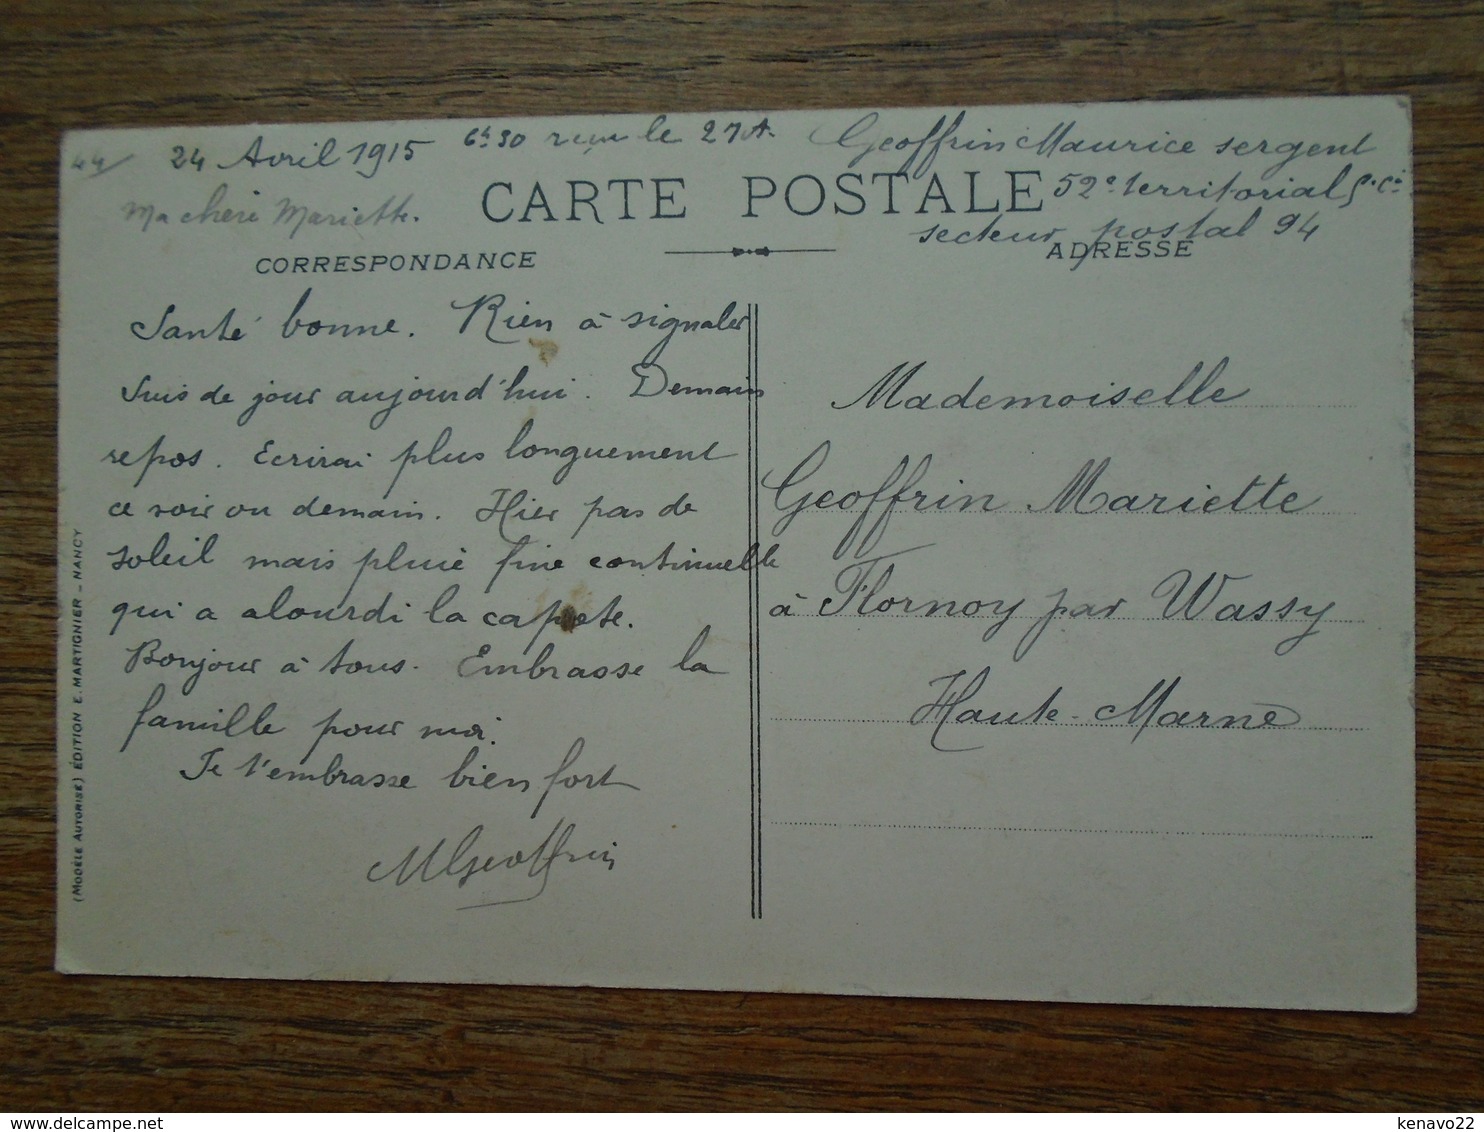 44 24 Avril 1915 6h30 reçu le 27 A.
Ma chère Mariette.
Geoffrin Maurice sergent
52e territorial 5e Cie
secteur postal 94
CARTE POSTALE
CORRESPONDANCE
ADRESSE
Santé bonne. Rien à signaler
Suis de jour aujourd'hui. Demain
repos. Ecrirai plus longuement
ce soir ou demain. Hier pas de
soleil mais pluie fine continuelle
qui a alourdi la capote.
Bonjour à tous. Embrasse la
famille pour moi.
Je t'embrasse bien fort
MGeoffrin
Mademoiselle
Geoffrin Mariette
à Flornoy par Wassy
Haute-Marne
(MODÈLE AUTORISÉ) ÉDITION E. MARTIGNIER - NANCY
kenavo22